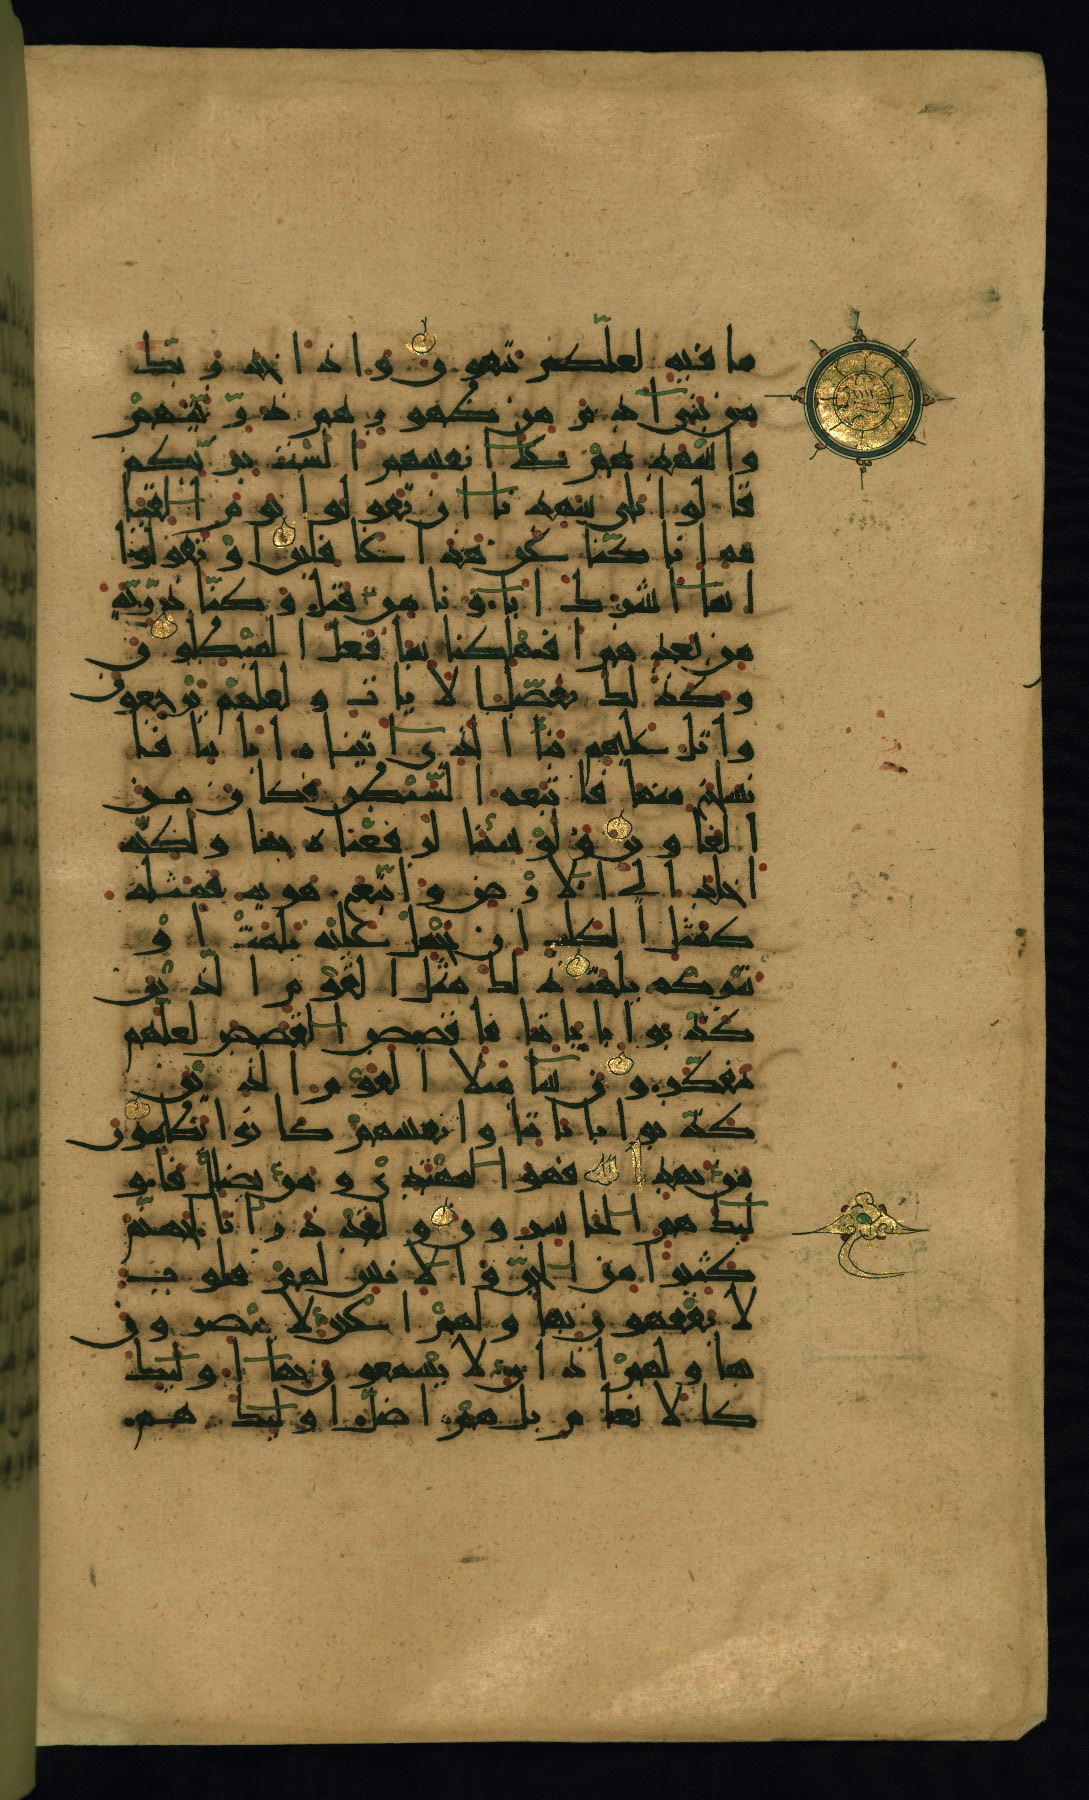 ما فيه لعلكم تتقون واذ اخذ ربك
من بنى ادم من ظهورهم ذريتهم
واشهدهم على انفسهم الست بربكم
قالوا بلى شهدنا ان تقولوا يوم القيا
مة انا كنا عن هذا غافلين او تقولوا
انما اشرك اباونا من قبل وكنا ذرية
من بعدهم افتهلكنا بما فعل المبطلون
وكذلك نفصل الايات ولعلهم يرجعون
واتل عليهم نبا الذى اتيناه اياتنا فا
نسلخ منها فاتبعه الشيطن فكان من
الغاوين ولو شئنا لرفعناه بها ولكنه
اخلد الى الارض واتبع هويه فمثله
كمثل الكلب ان تحمل عليه يلهث او
تتركه يلهث ذلك مثل القوم الذين
كذبوا باياتنا فاقصص القصص لعلهم
يتفكرون ساء مثلا القوم الذين
كذبوا باياتنا وانفسهم كانوا يظلمون
من يهد الله فهو المهتدى ومن يضلل فاو
لئك هم الخاسرون ولقد ذرانا لجهنم
كثيرا من الجن والانس لهم قلوب
لا يفقهون بها ولهم اعين لا يبصرون
بها ولهم اذان لا يسمعون بها اولئك
كالانعام بل هم اضل اولئك هم